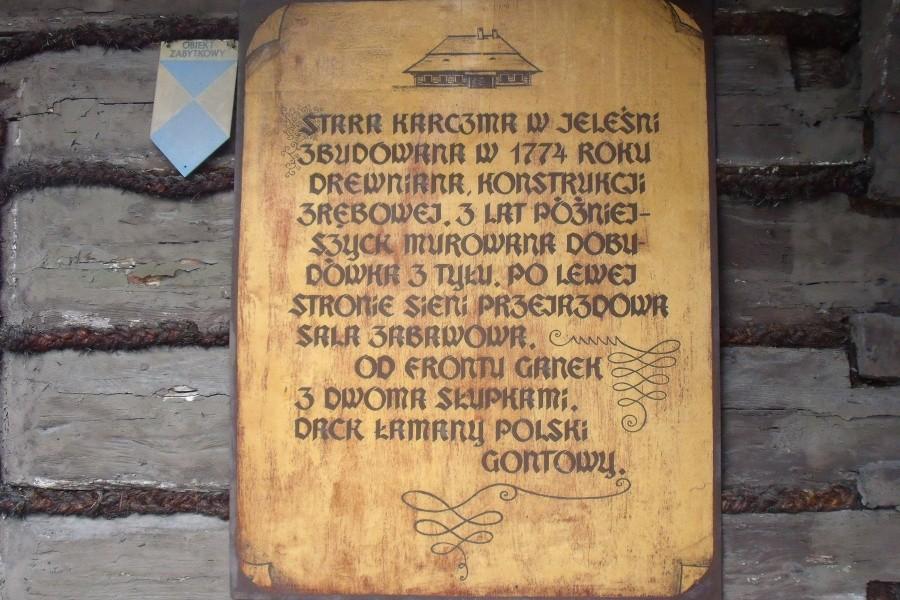 OBIEKT
ZABYTKOWY
STARA KARCZMA W JELEŚNI
ZBUDOWANA W 1774 ROKU
DREWNIANA, KONSTRUKCJI
ZRĘBOWEJ. Z LAT PÓŹNIEJ-
SZYCH MUROWANA DOBU-
DÓWKA Z TYŁU. PO LEWEJ
STRONIE SIENI PRZEJAZDOWA
SALA ZABAWOWA.
OD FRONTU GANEK
Z DWOMA SŁUPKAMI.
DACH ŁAMANY POLSKI
GONTOWY.